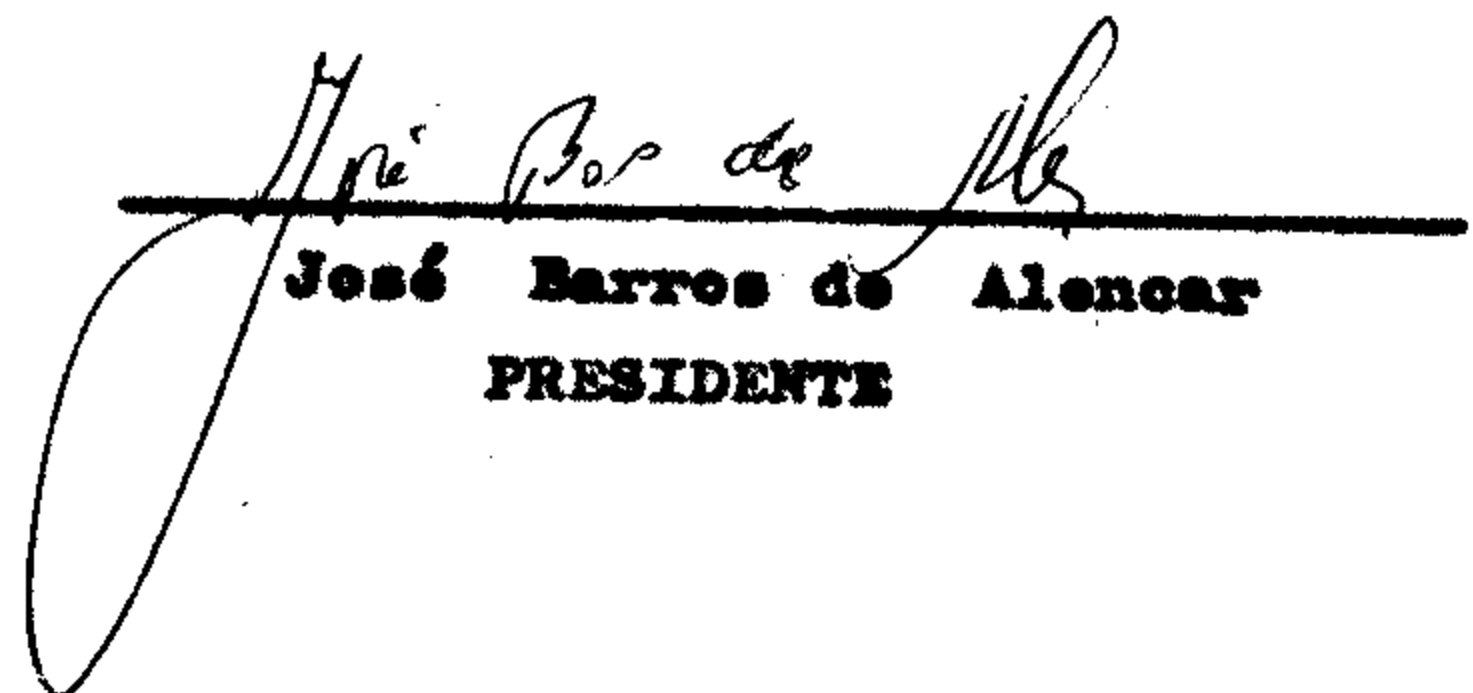 José Bos de Ale
José Barros de Alencar
PRESIDENTE